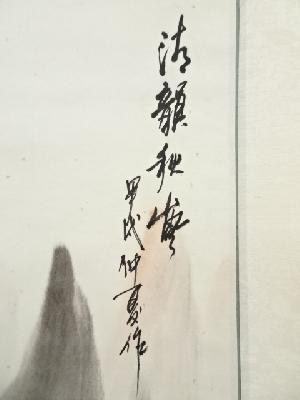 清韻秋
甲戌仲夏作